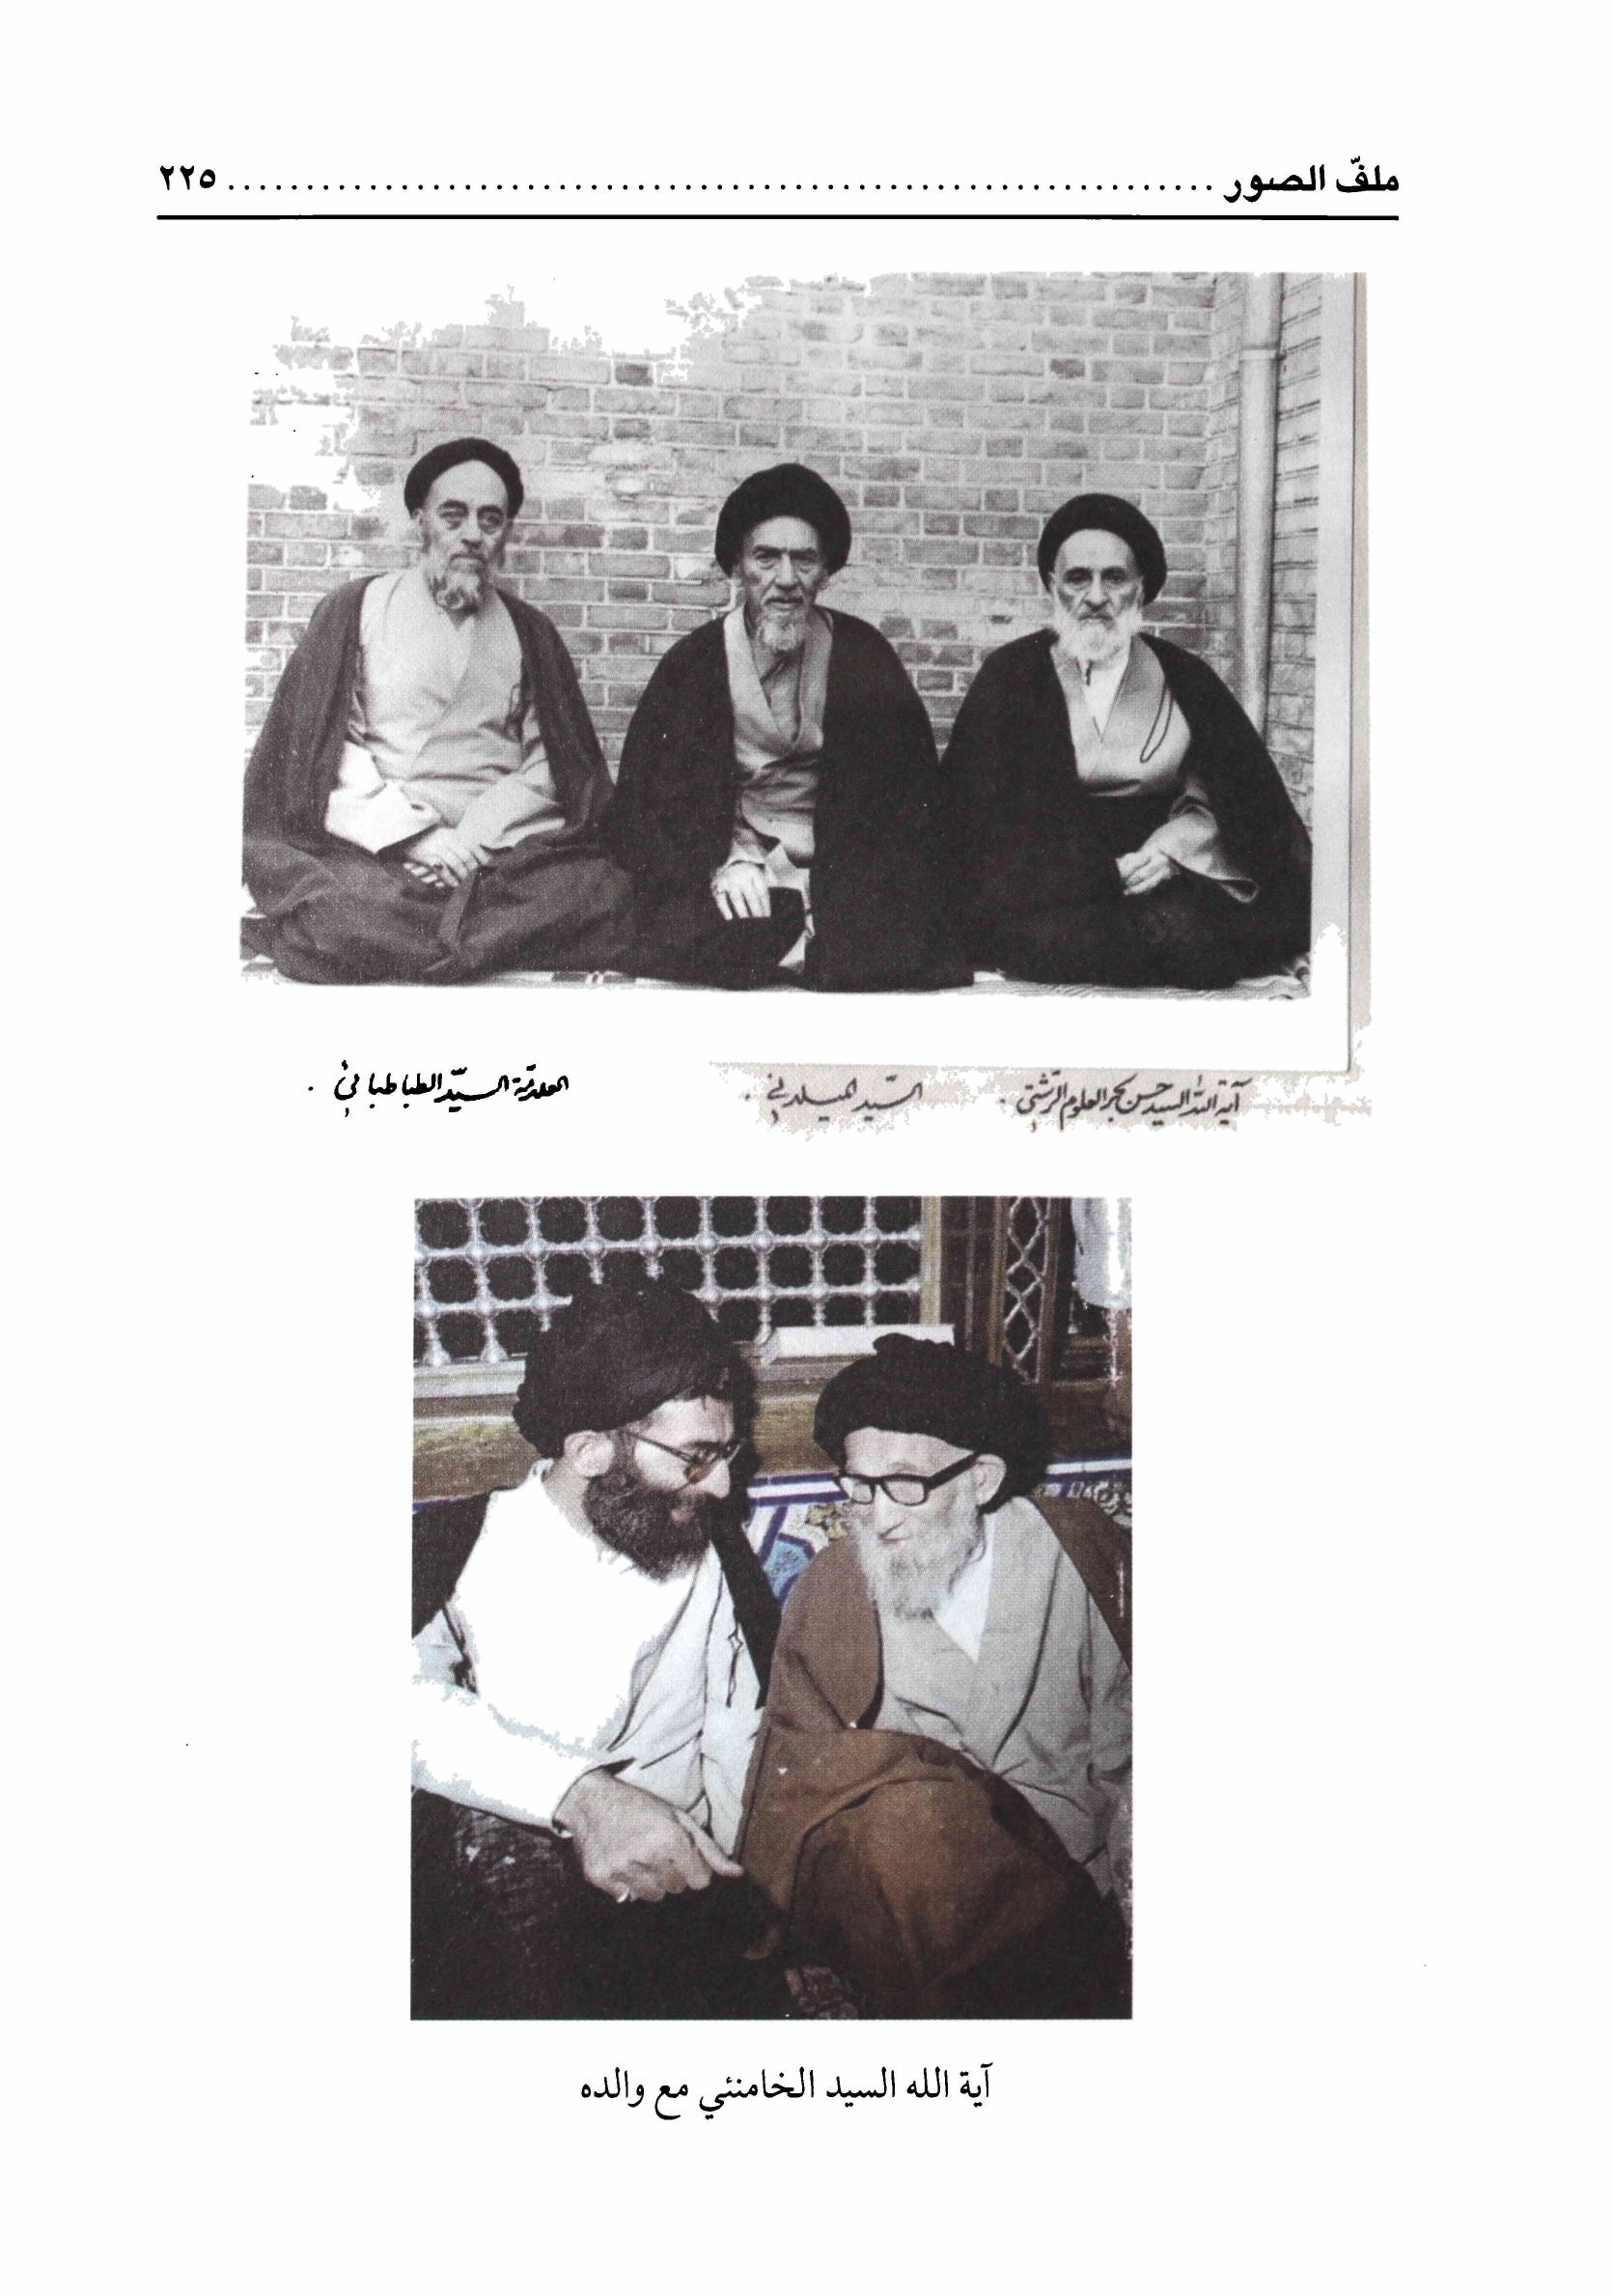 ملفّ الصور ........................................................ ٢٢٥
آية الله السيد حسن بحر العلوم الرّشتي .
السّيد الميلاني .
العلامّة السيّد الطباطبائي .
آية الله السيد الخامنئي مع والده